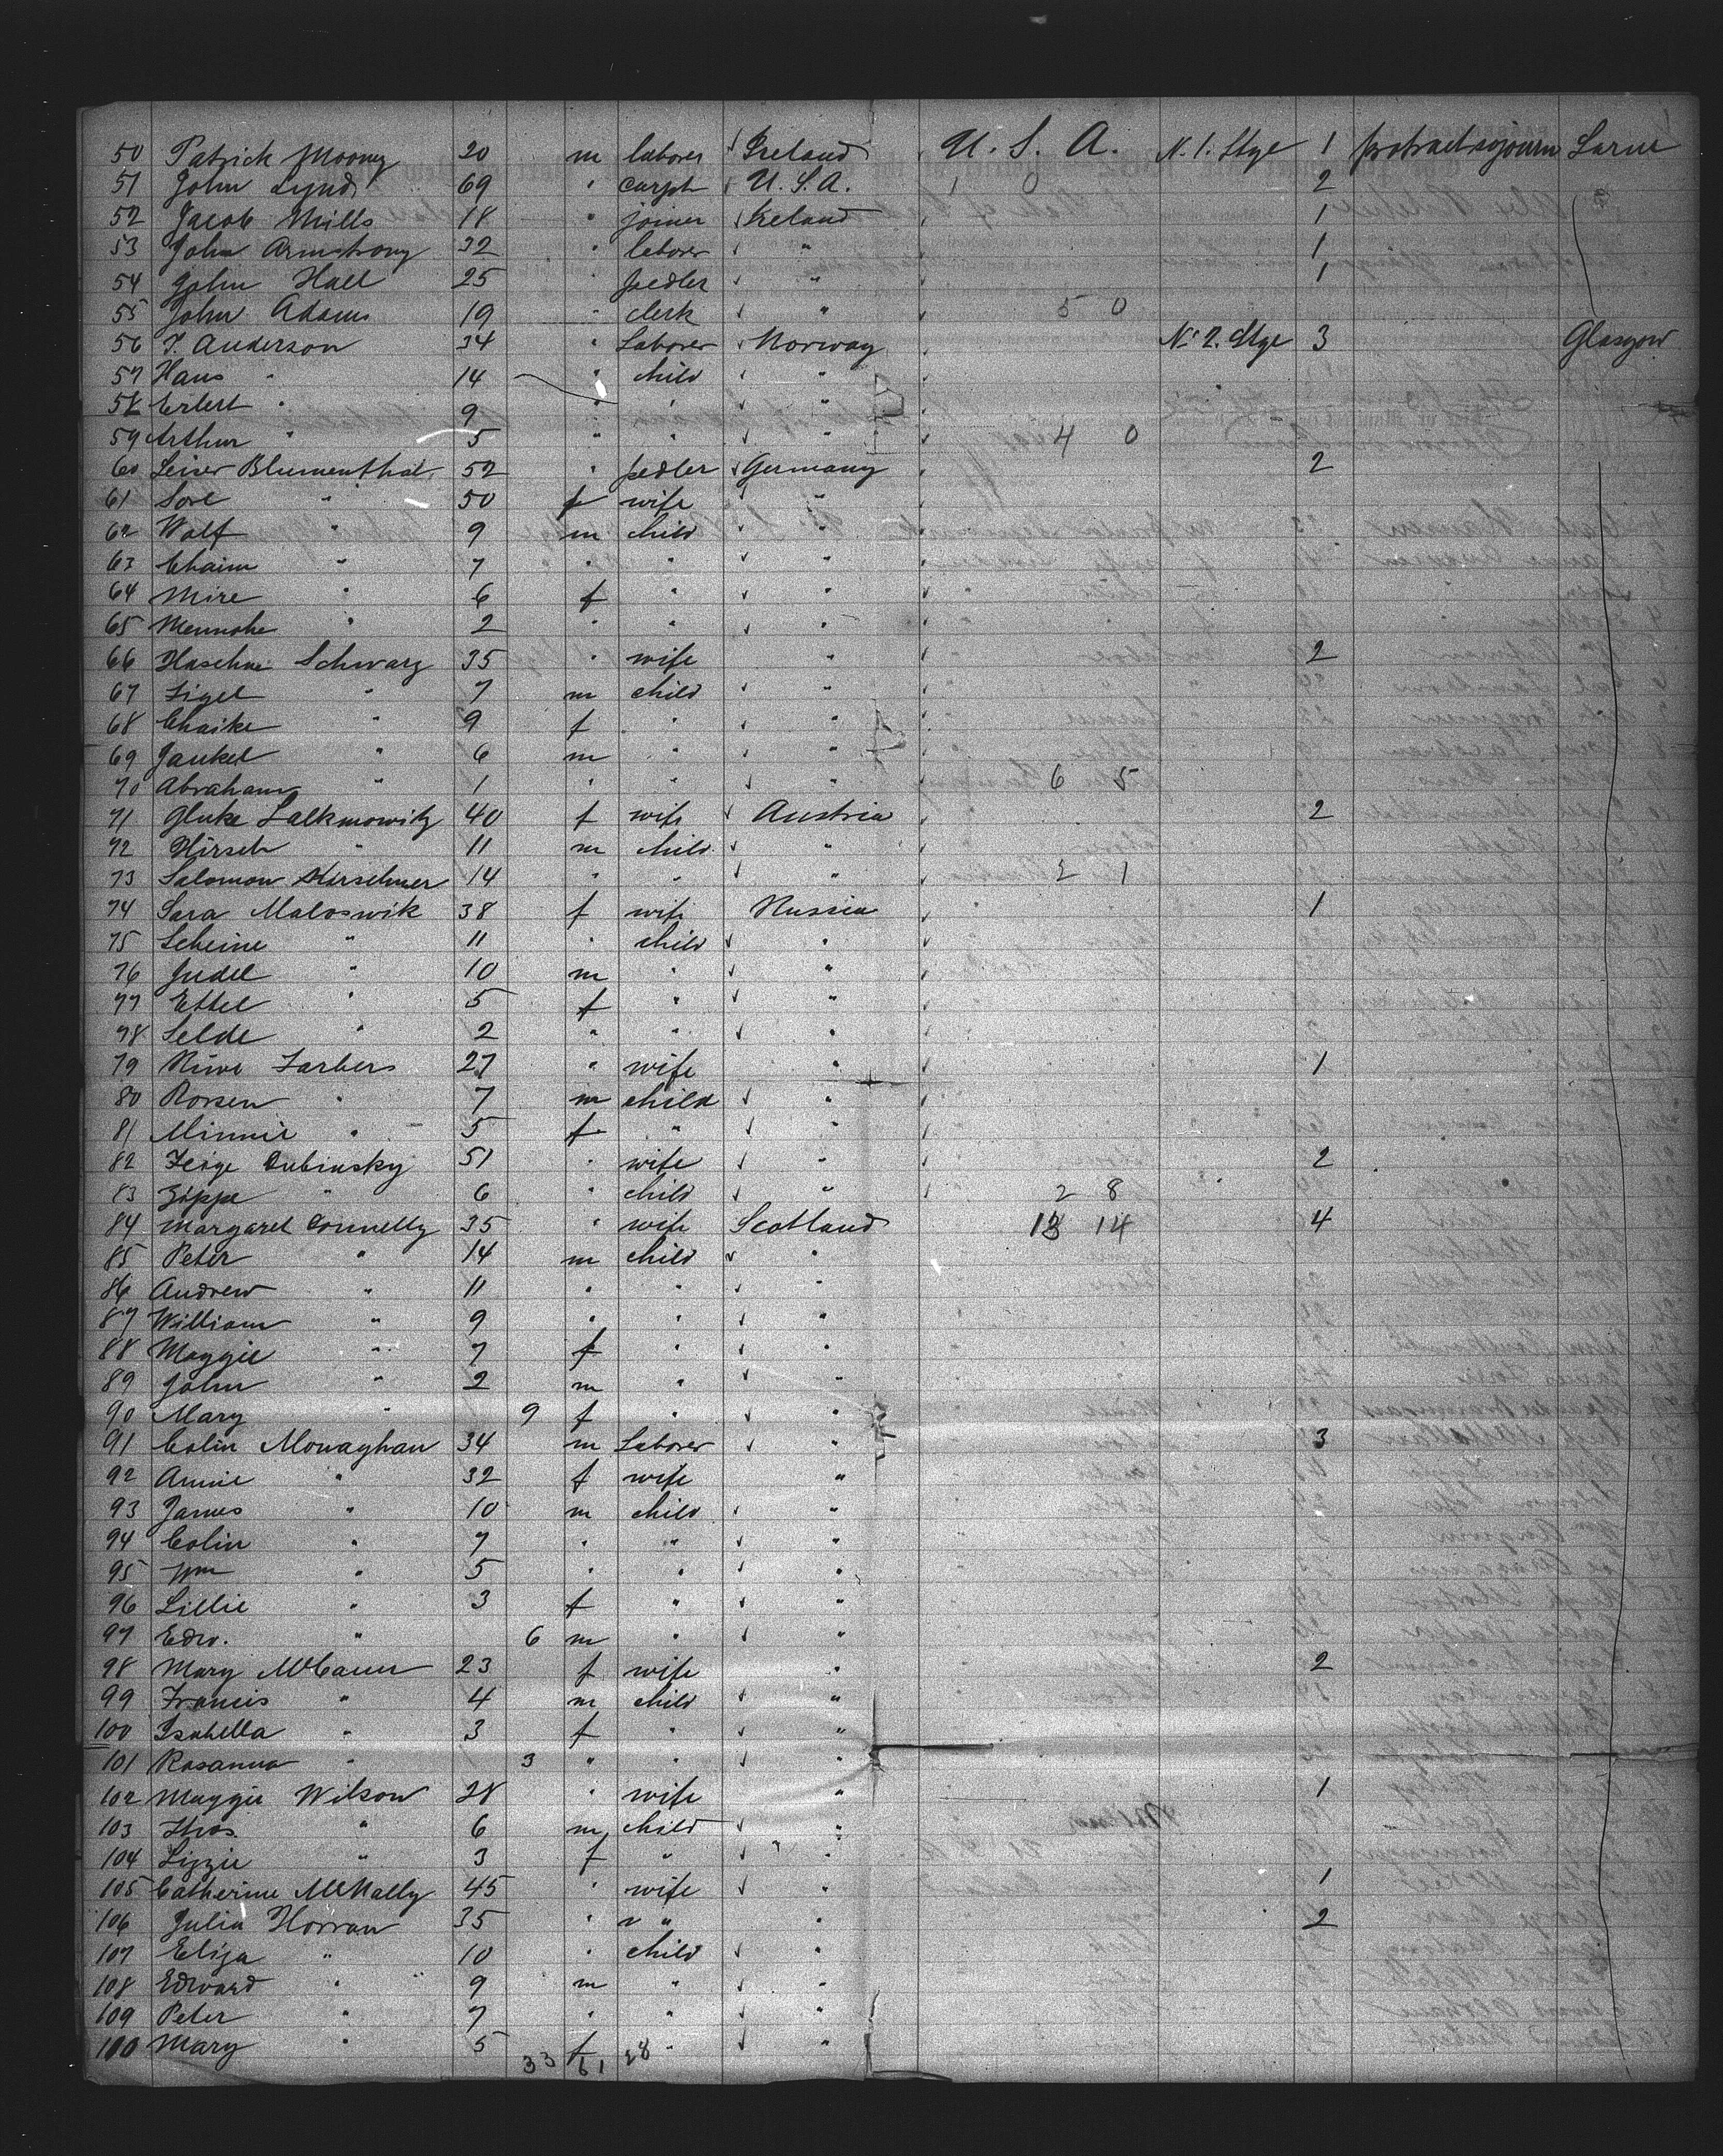 50 Patrick Mooney 20 m laborer Ireland U. S. A. N. 1. Stge 1 protract sojourn Larne
51 John Lynd 69 " carpt U. S. A. 2
52 Jacob Mills 18 " joiner Ireland 1
53 John Armstrong 32 " laborer " 1
54 John Hall 25 " pedler " 1
55 John Adams 19 " clerk " 5 0
56 J. Anderson 34 " Laborer Norway No 2. Stge 3 Glasgow
57 Hans " 14 " child "
58 Erlert " 9 " " "
59 Arthur " 5 " " " 4 0
60 Leiser Blumenthal 52 " pedler Germany 2
61 Sore " 50 f wife "
62 Wolf " 9 m child "
63 Chaim " 7 " " "
64 Mire " 6 f " "
65 Mennohe " 2 " " "
66 Haschne Schwarz 35 " wife " 2
67 Sigel " 7 m child "
68 Chaike " 9 f " "
69 Jankel " 6 m " "
70 Abraham " 1 " " " 6 5
71 Gluke Lalkmowitz 40 f wife Austria 2
72 Hirsch " 11 m child "
73 Salomon Hirschner 14 " " " 2 1
74 Sara Maloswik 38 f wife Russia 1
75 Scheine " 11 " child "
76 Judel " 10 m " "
77 Ettel " 5 f " "
78 Selde " 2 " " "
79 Riwe Farbers 27 " wife " 1
80 Rorsen " 7 m child "
81 Minnie " 5 f " "
82 Feige Dubinsky 51 " wife " 2
83 Zippe " 6 " child " 2 8
84 Margaret Connelly 35 " wife Scotland 13 14 4
85 Peter " 14 m child "
86 Andrew " 11 " " "
87 William " 9 " " "
88 Maggie " 7 f " "
89 John " 2 m " "
90 Mary " 9 f " "
91 Colin Monaghan 34 m Laborer " 3
92 Annie " 32 f wife "
93 James " 10 m child "
94 Colin " 7 " " "
95 Wm " 5 " " "
96 Lillie " 3 f " "
97 Edw. " 6 m " "
98 Mary McCann 23 f wife " 2
99 Francis " 4 m child "
100 Isabella " 3 f " "
101 Rosanna " 3 " " "
102 Maggie Wilson 28 " wife " 1
103 Thos. " 6 m child "
104 Lizzie " 3 f " "
105 Catherine McNally 45 " wife " 1
106 Julia Horran 35 " " " 2
107 Eliza " 10 " child "
108 Edward " 9 m " "
109 Peter " 7 " " "
110 Mary " 5 f " "
33 61 28